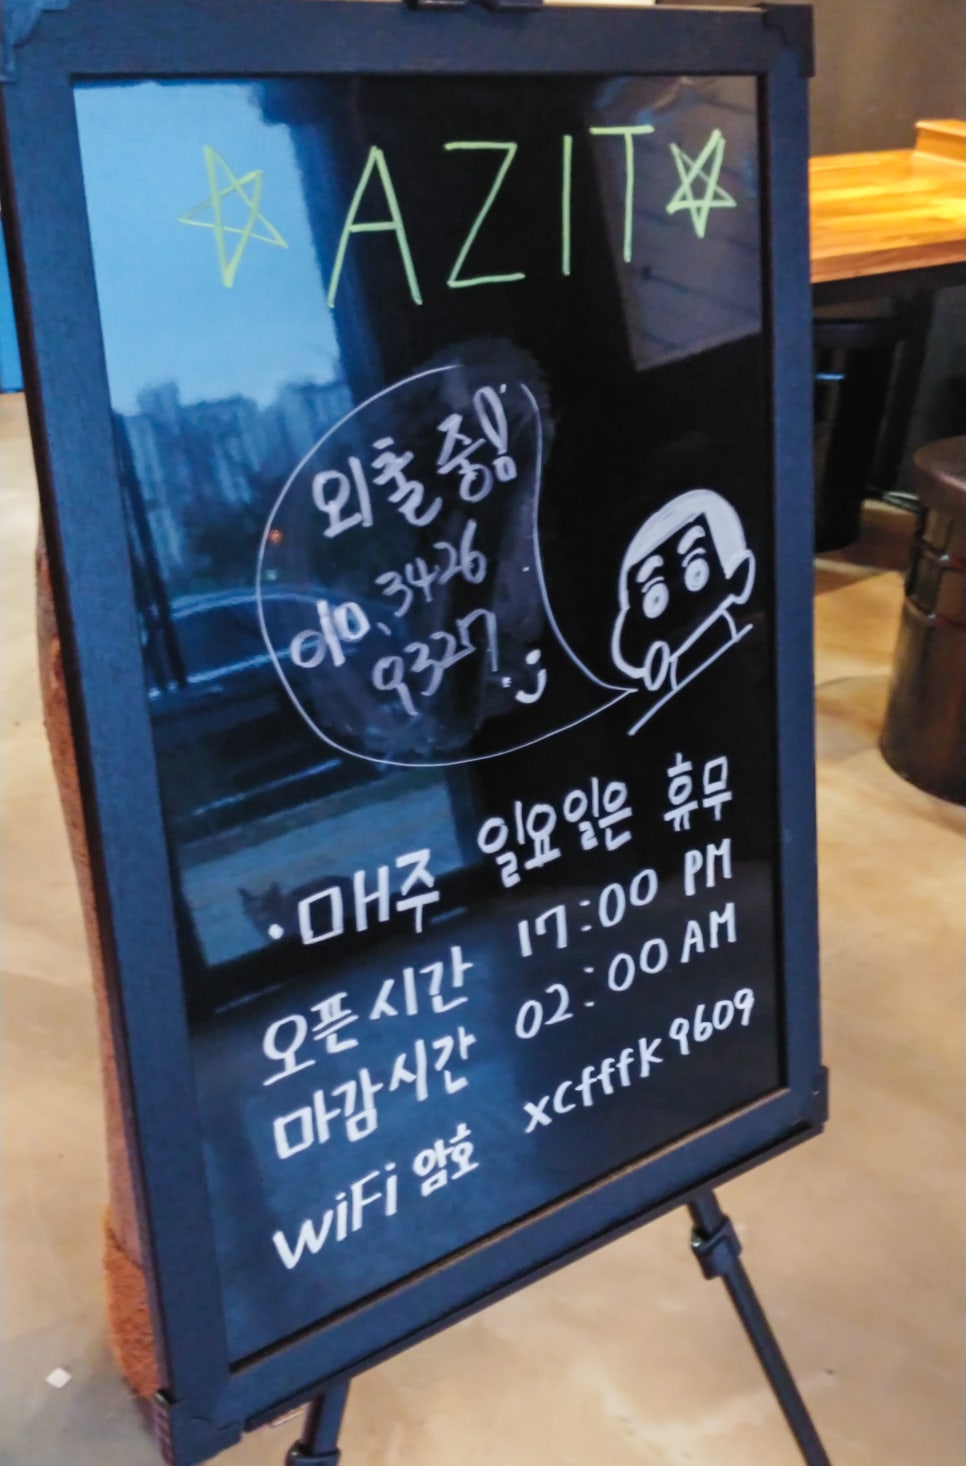 AZIT
외출 중!
010.3426
9327
·매주 일요일은 휴무
오픈시간 17:00 PM
마감시간 02:00 AM
WiFi 암호 xcfffk9609